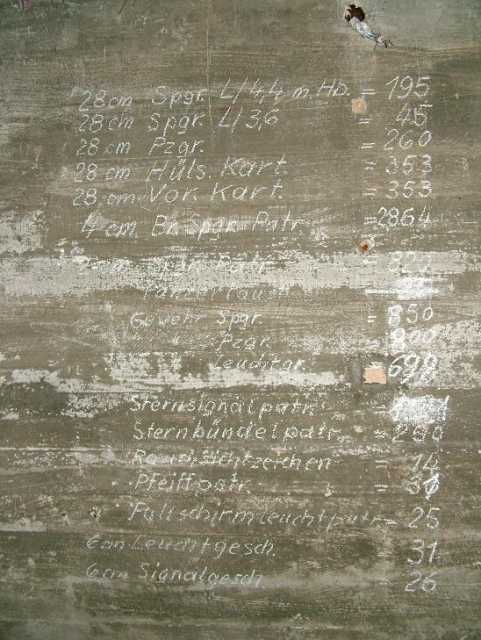 28cm Spgr. L/4,4 m. Hb. = 195
28cm Spgr. L/3,6 = 45
28cm Pzgr. = 260
28cm Hüls. Kart. = 353
28.cm Vor. Kart. = 353
4 cm Br. Spgr. Patr. = 2864
cm Patr.
Gewehr Spgr. = 850
" Pzgr. = 900
" Leuchtgr. = 699
Sternsignalpatr. =
Sternbündelpatr. = 200
Rauchsichtzeichen = 14
Pfeiffpatr. =
Fallschirmleuchtpatr. = 25
6cm Leuchtgesch. 31
6cm Signalgesch. 26